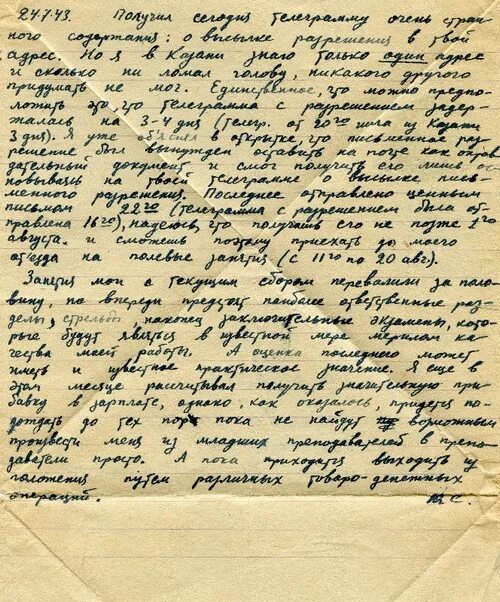 24.7.43. Получил сегодня телеграмму очень стран-
ного содержания: о высылке разрешения в твой
адрес. Но я в Казани знаю только один адрес
и сколько ни ломал голову, никакого другого
придумать не мог. Единственное, что можно предпо-
ложить это, что телеграмма с разрешением задер-
жалась на 3-4 дня (телегр. от 20го шла из Казани
3 дня). Я уже об'яснял в открытке, что письменное раз-
решение был вынужден оставить на почте как оправ
дательный документ и смог получить его лишь ос-
новываясь на твоей телеграмме о высылке пись-
менного разрешения. Последнее отправлено ценным
письмом 22го (телеграмма с разрешением была от-
правлена 16го), надеюсь, что получишь его не позже 1го
августа. и сможешь поэтому приехать до моего
от'езда на полевые занятия (с 11го по 20 авг.).
Занятия мои с текущим сбором перевалили за поло-
вину, но впереди предстоят наиболее ответственные раз-
делы, стрельбы, наконец заключительные экзамены, кото-
рые будут являться в известной мере мерилом ка-
чества моей работы. А оценка последнего может
иметь и известное практическое значение. Я еще в
этом месяце рассчитывал получить значительную при-
бавку в зарплате, однако, как оказалось, придется по-
дождать до тех пор пока не найдут возможным
произвести меня из младших преподавателей в препо-
даватели просто. А пока приходится выходить из
положения путем различных товаро-денежных
операций.